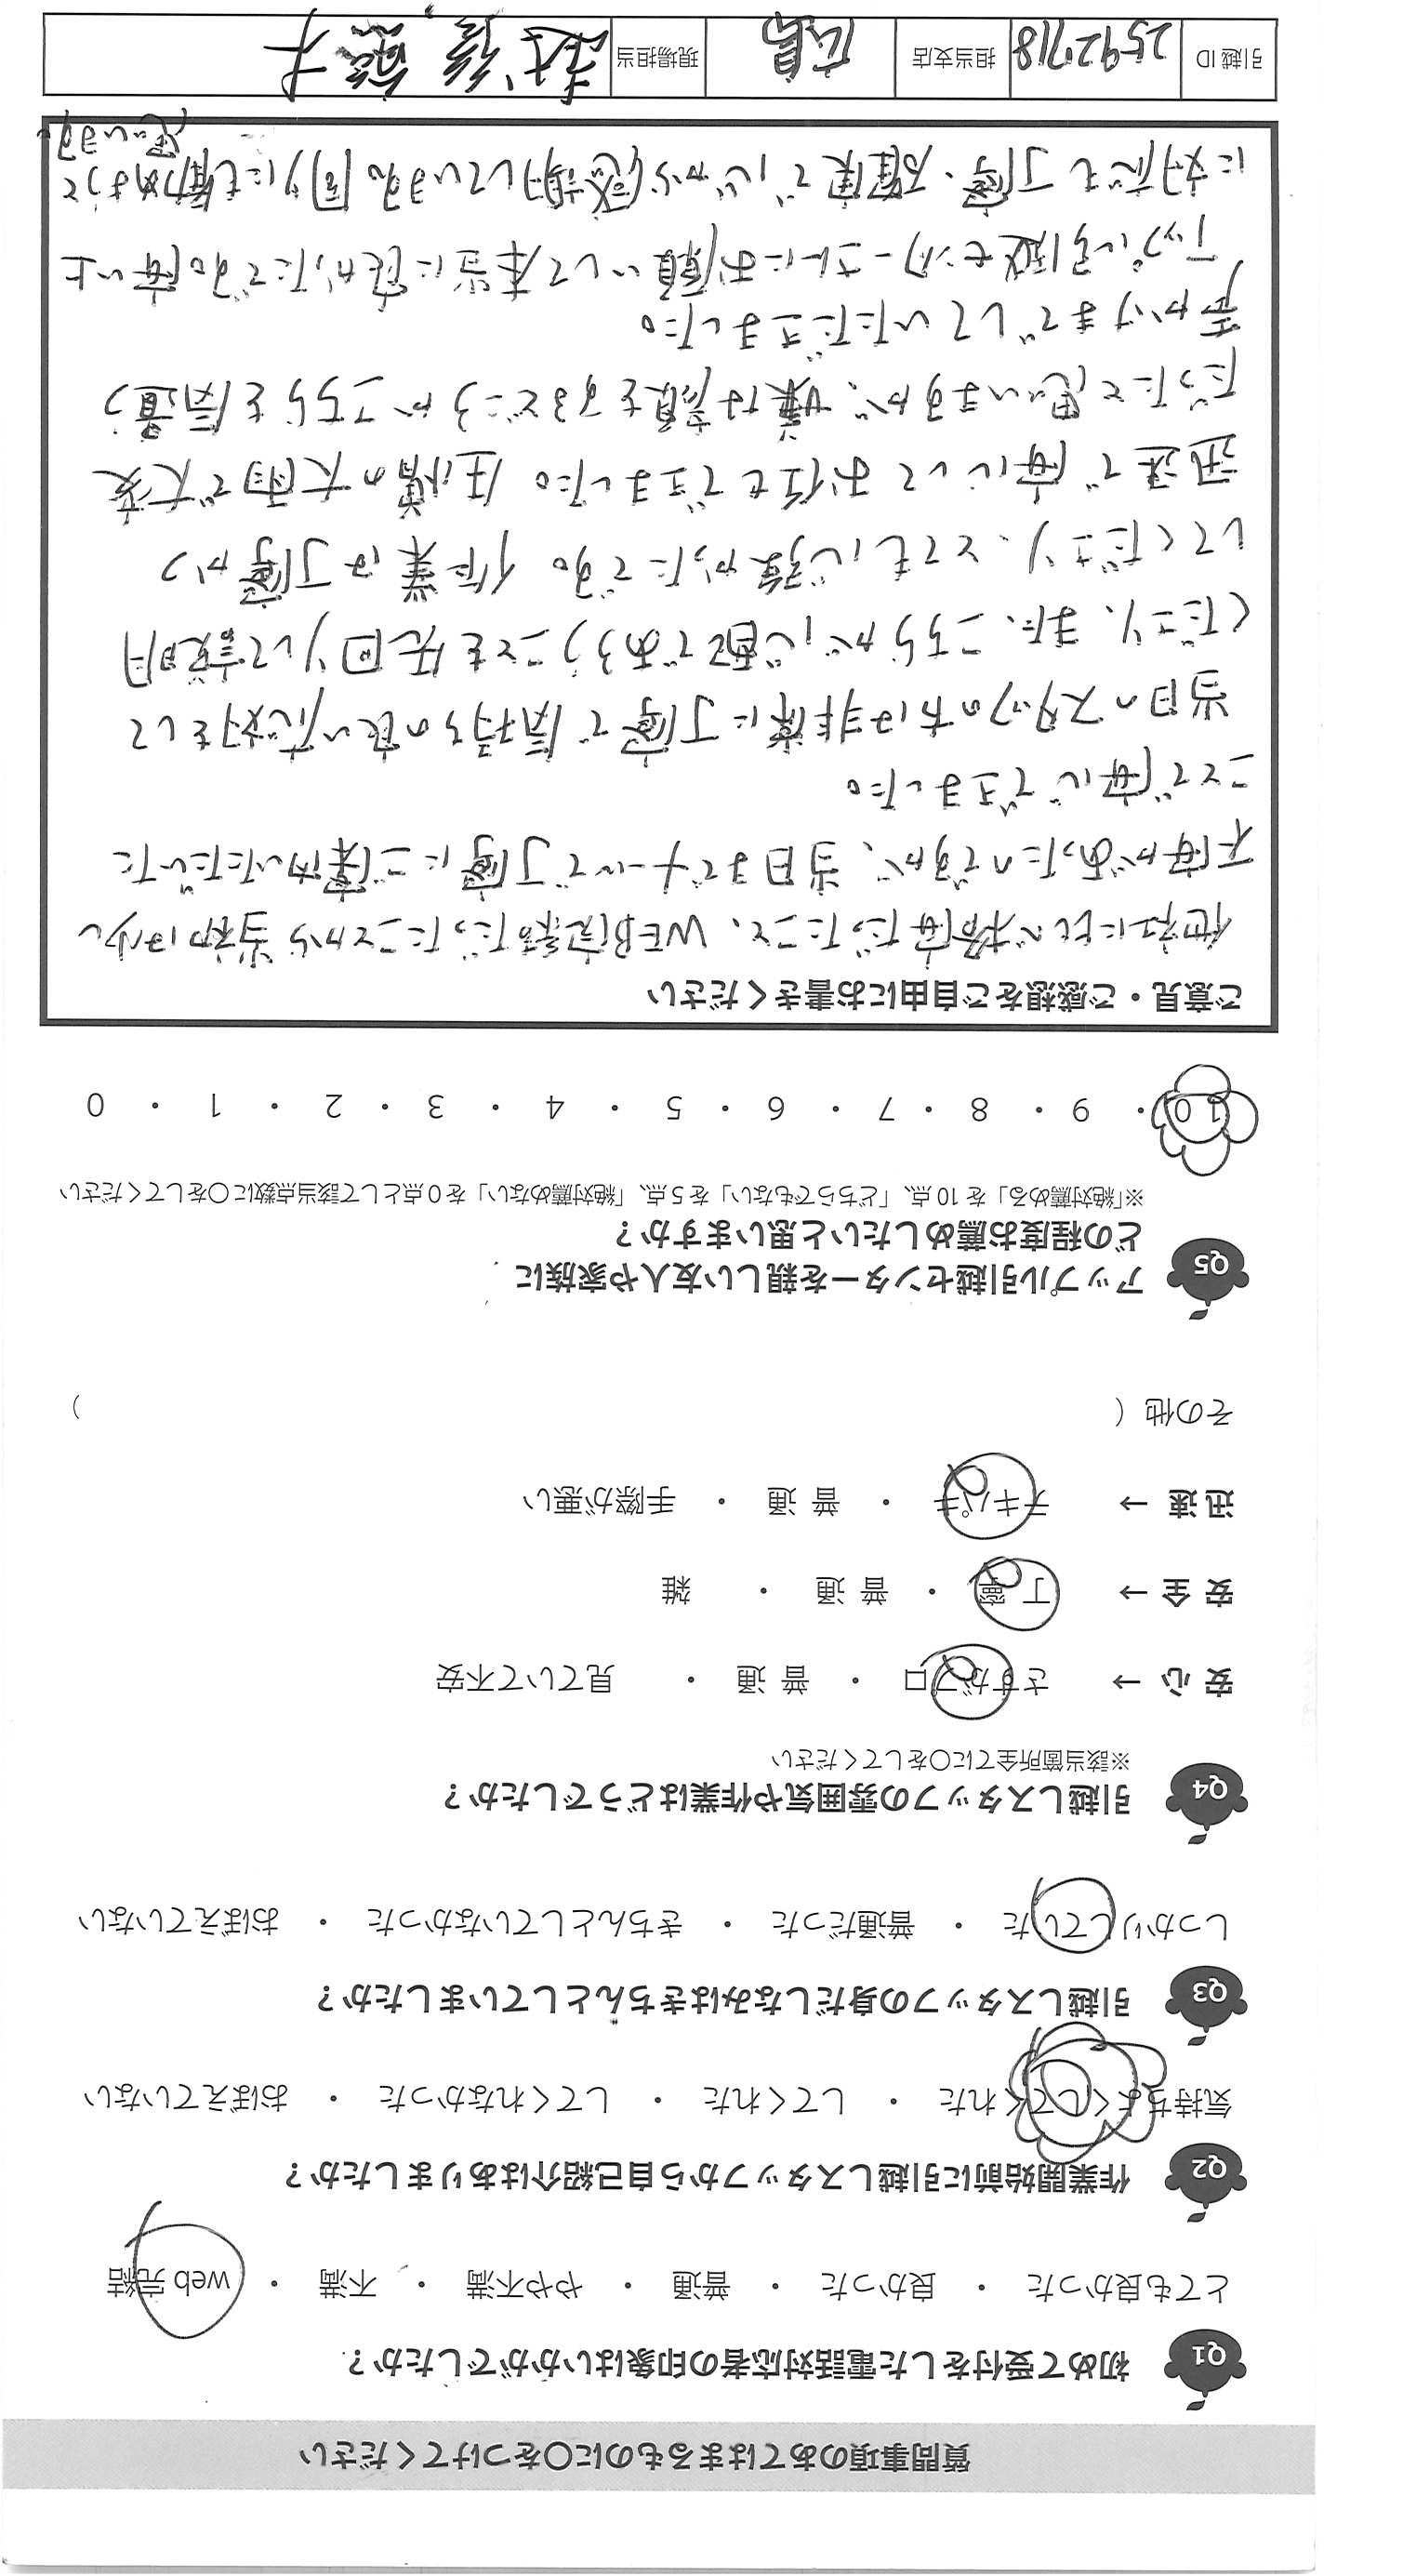 質問事項のあてはまるものに○をつけてください
Q1 初めて受付をした電話対応者の印象はいかがでしたか？
とても良かった ・ 良かった ・ 普通 ・ やや不満 ・ 不満 ・ web 完結
Q2 作業開始前に引越しスタッフから自己紹介はありましたか？
気持ちよくしてくれた ・ してくれた ・ してくれなかった ・ おぼえていない
Q3 引越しスタッフの身だしなみはきちんとしていましたか？
しっかりしていた ・ 普通だった ・ きちんとしていなかった ・ おぼえていない
Q4 引越しスタッフの雰囲気や作業はどうでしたか？
※該当箇所全てに○をしてください
安 心 → さすがプロ ・ 普 通 ・ 見ていて不安
安 全 → 丁 寧 ・ 普 通 ・ 雑
迅 速 → テキパキ ・ 普 通 ・ 手際が悪い
その他（ ）
Q5 アップル引越センターを親しい友人や家族に
どの程度お薦めしたいと思いますか？
※「絶対薦める」を 10 点、「どちらでもない」を 5 点、「絶対薦めない」を 0 点として該当点数に○をしてください
10 ・ 9 ・ 8 ・ 7 ・ 6 ・ 5 ・ 4 ・ 3 ・ 2 ・ 1 ・ 0
ご意見・ご感想をご自由にお書きください
他社にくらべ格安だったこと、WEB完結だったことから当初は少し
不安があったのですが、当日までメールで丁寧にご案内いただいた
ことで安心できました。
当日のスタッフの方は非常に丁寧で気持ちの良い応対をして
くださり、また、こちらが心配であろうことも先回りして説明
してくださり、とても心強かったです。作業は丁寧かつ
迅速で安心してお任せできました。生憎の大雨で大変
だったと思いますが、嫌な顔をするどころかこちらを気遣う
声かけまでしていただきました。
アップル引越センターさんにお願いして本当に良かったです。安い上
に対応も丁寧・確実で心から感謝しています。周りにも薦めようと
思います。
引越 ID 2592718 担当支店 広島 現場担当